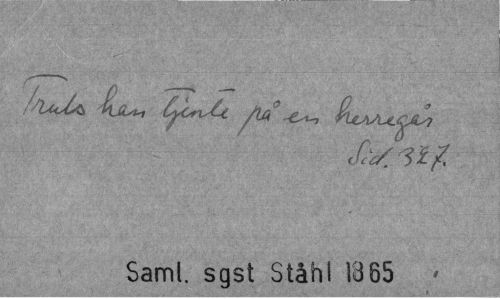 Truls han tjente på en herregår
Sid. 327.
Saml. sgst Ståhl 1865